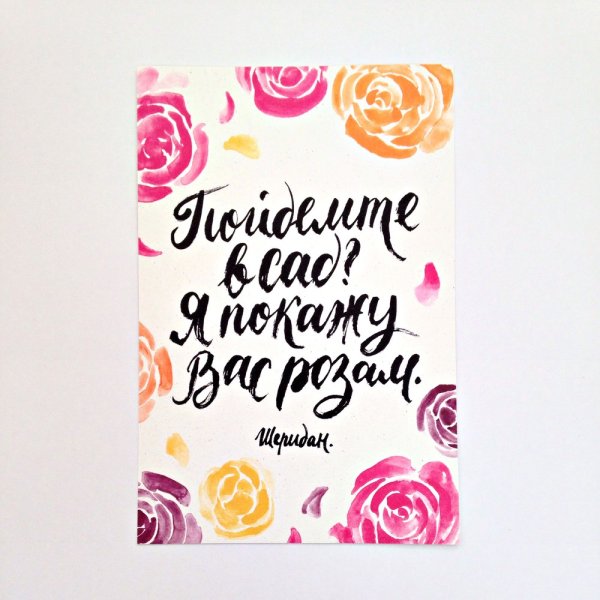 Пойдемте
в сад?
Я покажу
Вас розам.
Шеридан.